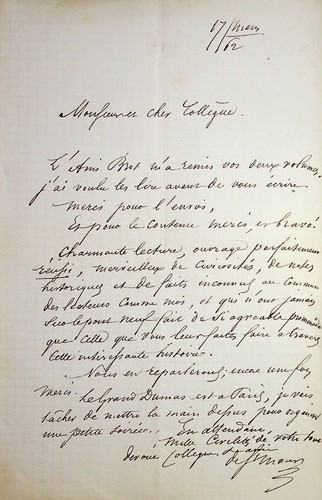 17 mars
62
Monsieur et cher Collègue.
L'Ami Brot m'a remis vos deux volumes,
j'ai voulu les lire avant de vous écrire.
Merci pour l'envoi,
Et pour le contenu merci, et bravo!
Charmante lecture, ouvrage parfaitement
réussi, merveilleux de curiosités, de notes
historiques et de faits inconnus au commun
des lecteurs comme moi, et qui n'ont jamais
sur le pont neuf fait de si agréable promenade
que celle que vous leur faites faire à travers
cette intéressante histoire.
Nous en reparlerons, encore une fois
merci. Le Grand Dumas est à Paris, je vais
tâcher de mettre la main dessus pour organiser
une petite soirée. En attendant,
Mille de votre tout
dévoué Collègue